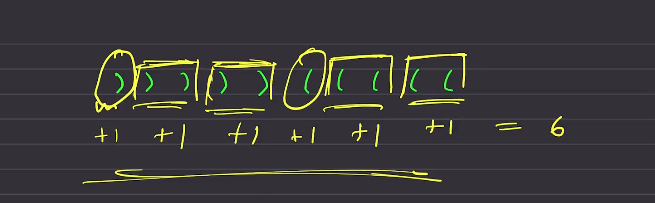 ) ) ) ) ) ( ( ( ( (
+1 +1 +1 +1 +1 +1 = 6